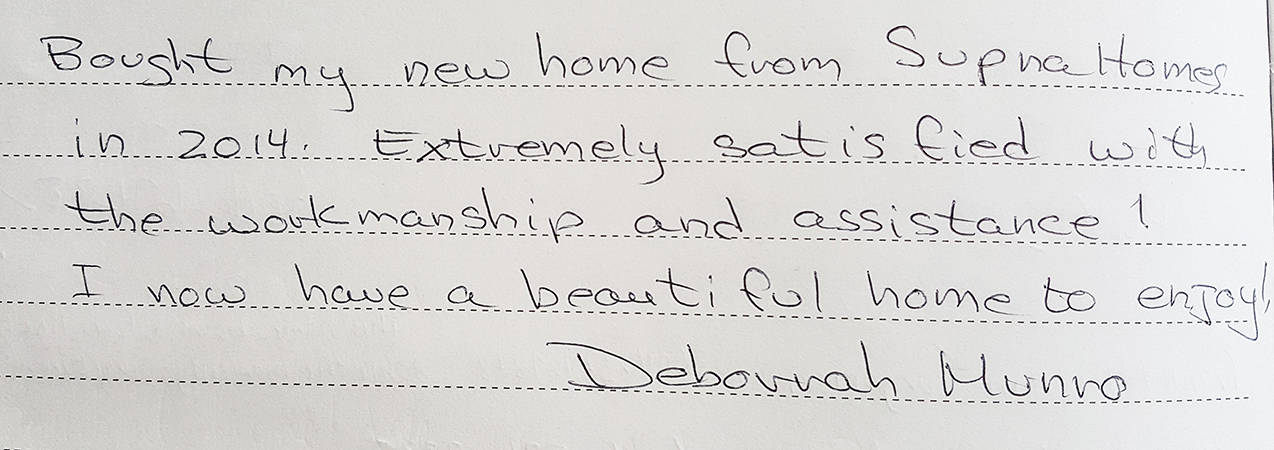 Bought my new home from Supra Homes
in 2014. Extremely satisfied with
the workmanship and assistance!
I now have a beautiful home to enjoy!
Deborrah Munro